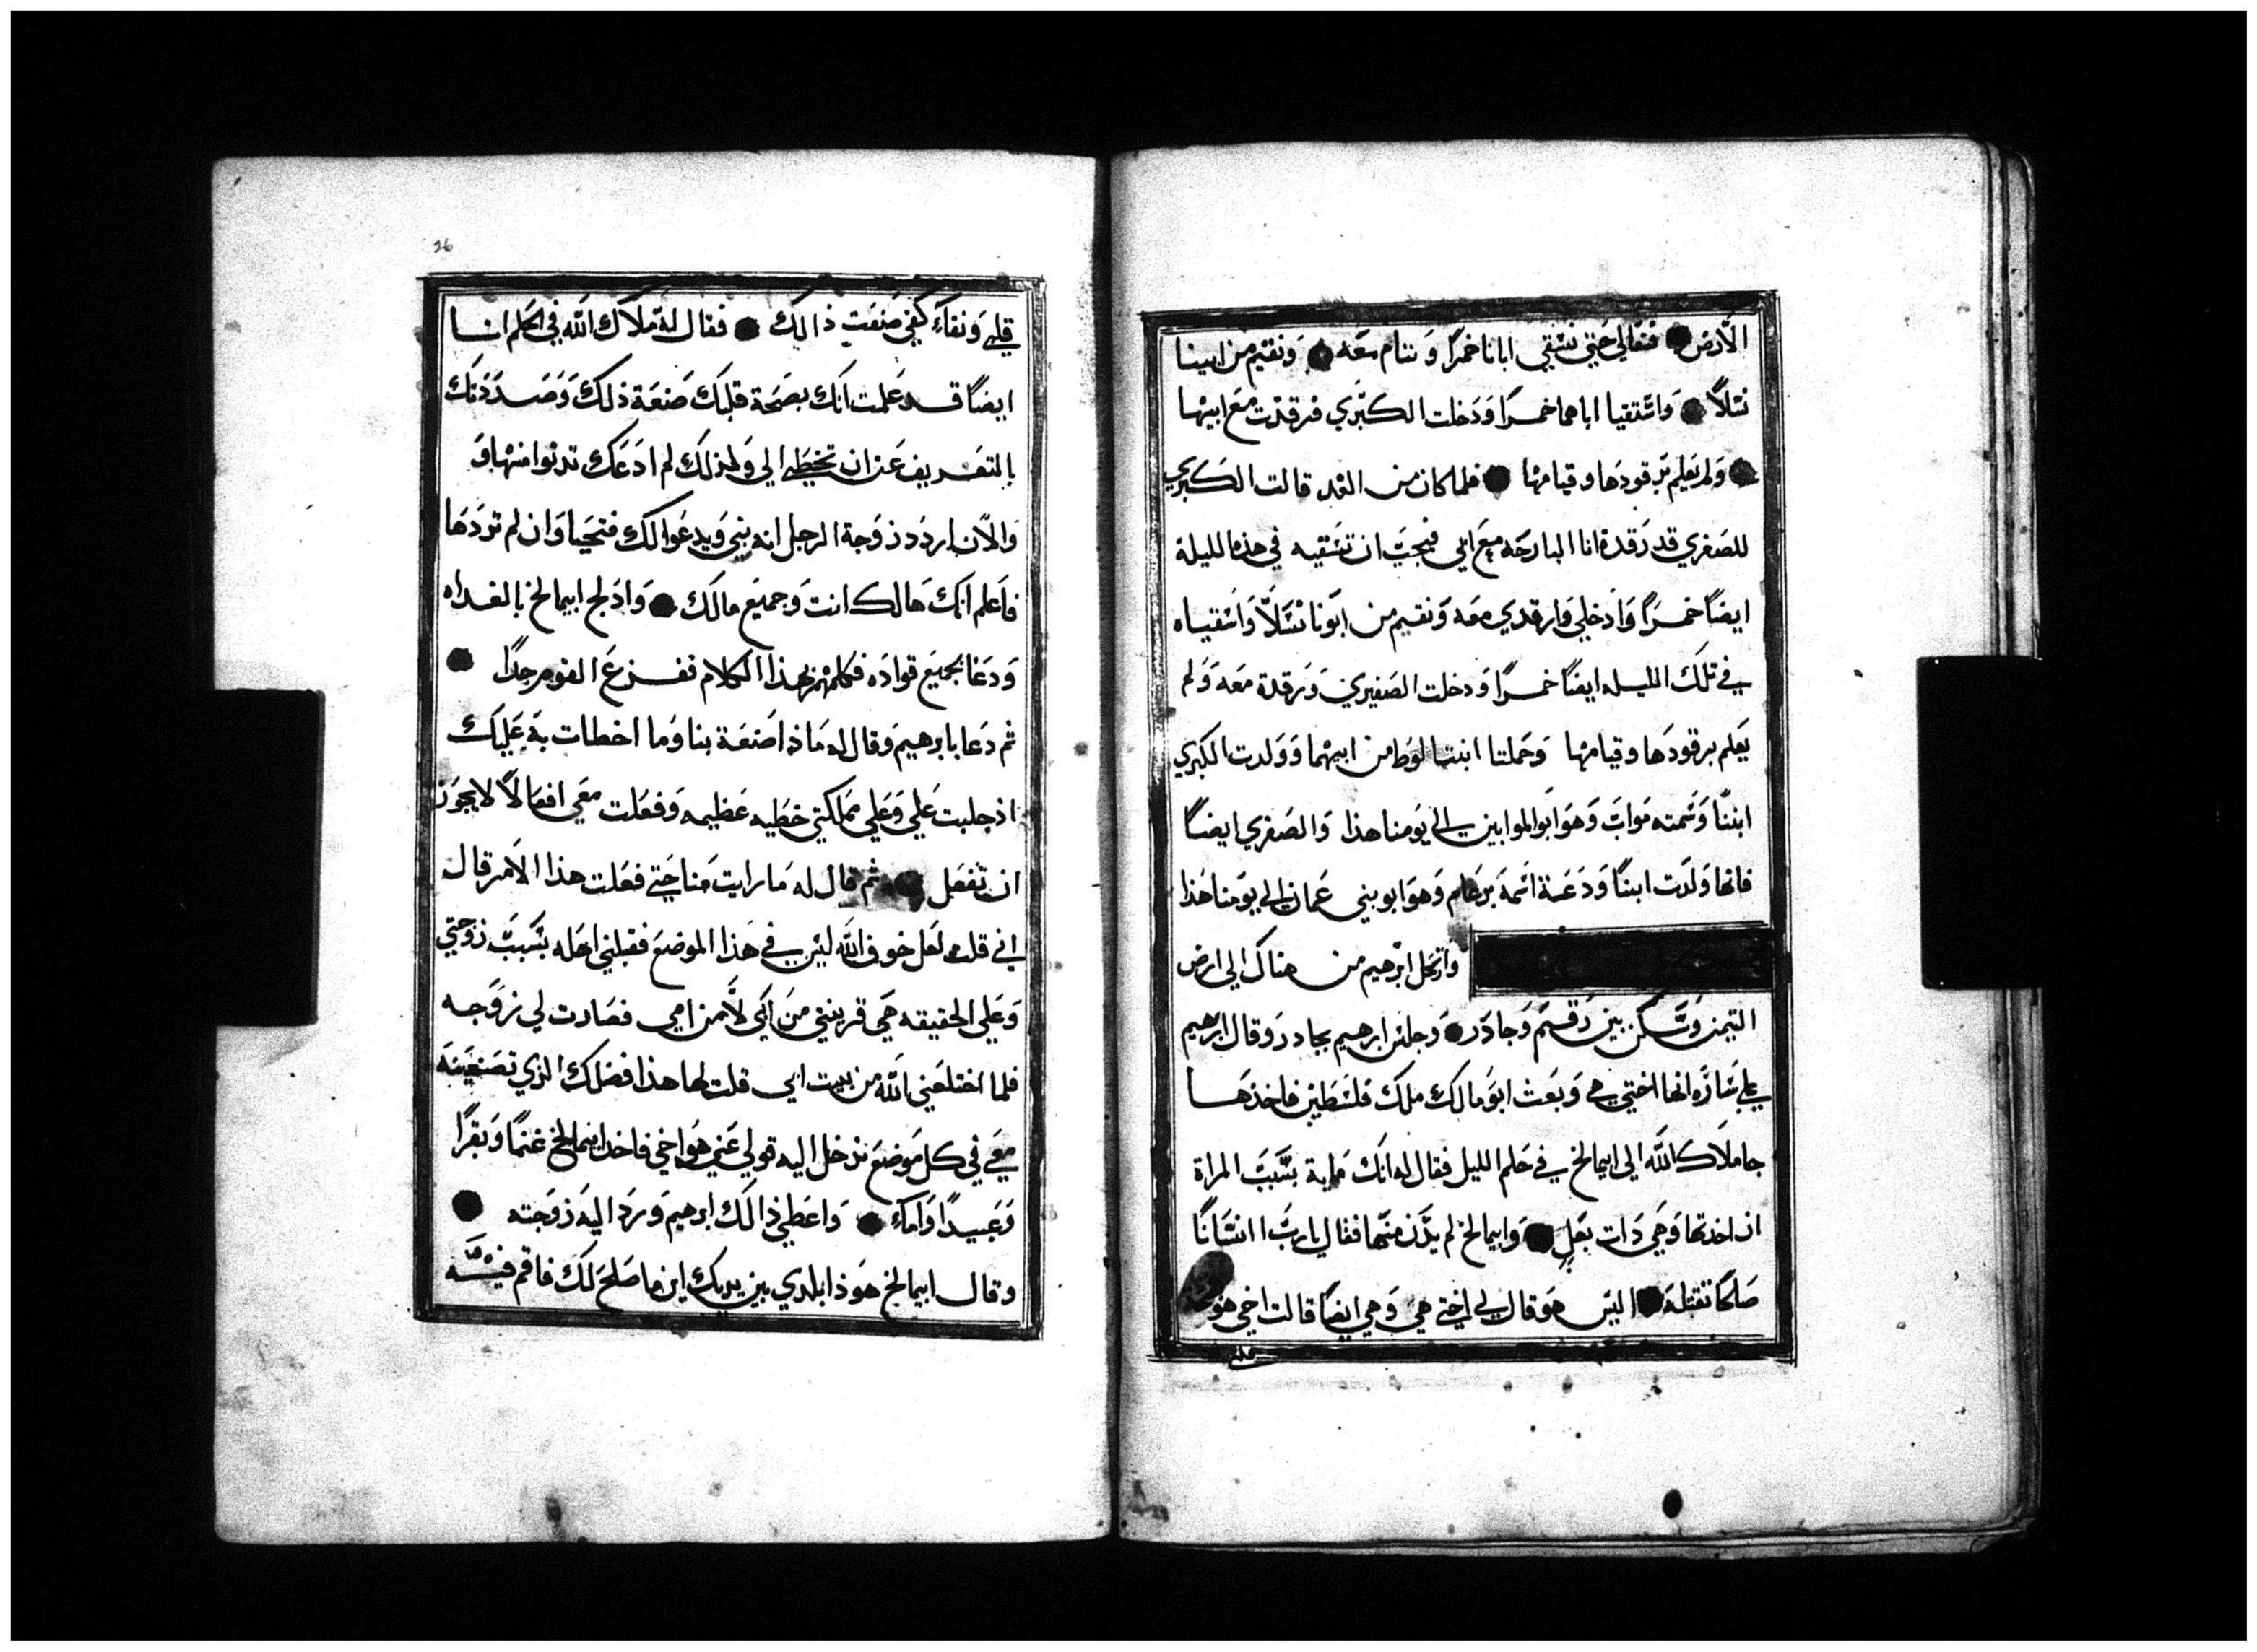 الارض فتعالي حتي نسقي ابانا خمرًا وننام معه ونقيم من ابينا
نسلاً واستقيا اباهما خمرًا ودخلت الكبري فرقدت مع ابيها
ولم يعلم برقودها وقيامها فلما كان من الغد قالت الكبري
للصغري قد رقدة انا البارحه مع ابي فيجب ان تسقيه في هذه الليلة
ايضًا خمرًا وادخلي وارقدي معه ونقيم من ابونا نسلاً واسقياه
في تلك الليله ايضًا خمرًا ودخلت الصغيري ورقدة معه ولم
يعلم برقودها وقيامها وحملتا ابنتا لوط من ابيهما وولدت الكبري
ابنًا وسمته مواب وهو ابو الموابين الي يومنا هذا والصغري ايضًا
فانها ولدت ابنًا ودعة اسمه برعام وهو ابو بني عمان الي يومنا هذا
وارتحل ابرهيم من هناك الي ارض
التيمن وسكن بين رقيم وجادر وجلس ابرهيم بجادر وقال ابرهيم
علي ساره انها اختي هي وبعث ابو مالك ملك فلسطين فاخذها
جا ملاك الله الي ابيمالخ في حلم الليل فقال له انك ماية بسبب المراة
ان اخدتها وهي دات بعل وابيمالخ لم يدن منها فقال يا رب اانسانًا
صلحًا تقتله اليس هو قال لي اختي هي وهي ايضًا قالت اخي هو
قلبي
26
قلبي ونقاء كفي صنعت ذالك فقال له ملاك الله في الحلم انا
ايضًا قد علمت انك بصحة قلبك صنعة ذلك وصددتك
بالتعريف عن ان تخطي الي ولمذلك لم ادعك تدنوا منها و
والان اردد زوجة الرجل انه بني ويدعوا لك فتحيا وان لم تردها
فاعلم انك هالك انت وجميع مالك وادلج ابيمالخ بالغداه
ودعا بجميع قواده فكلمهم بهذا الكلام ففزع القوم جدًا
ثم دعا بابرهيم وقال له ماذا صنعة بنا وما اخطات به عليك
اذ جلبت علي وعلي مملكتي خطيه عظيمه وفعلت معي افعالاً لا يجوز
ان تفعل ثم قال له ما رايت منا حتي فعلت هذا الامر قال
اني قلت لعل خوف الله ليس في هذا الموضع فقبلني اهله بسبب زوجتي
وعلي الحقيقه هي قريبتي من ابي لا من امي فصارت لي زوجه
فلما اختلعني الله من بيت ابي قلت لها هذا فضلك الذي تصنعينه
معي في كل موضع ندخل اليه قولي عني هو اخي فاخد ابيمالخ غنمًا وبقرًا
وعبيدًا واماء واعطي ذالك ابرهيم ورد اليه زوجته
وقال ابيمالخ هوذا بلدي بين يديك اين ما صلح لك فاقم فيه